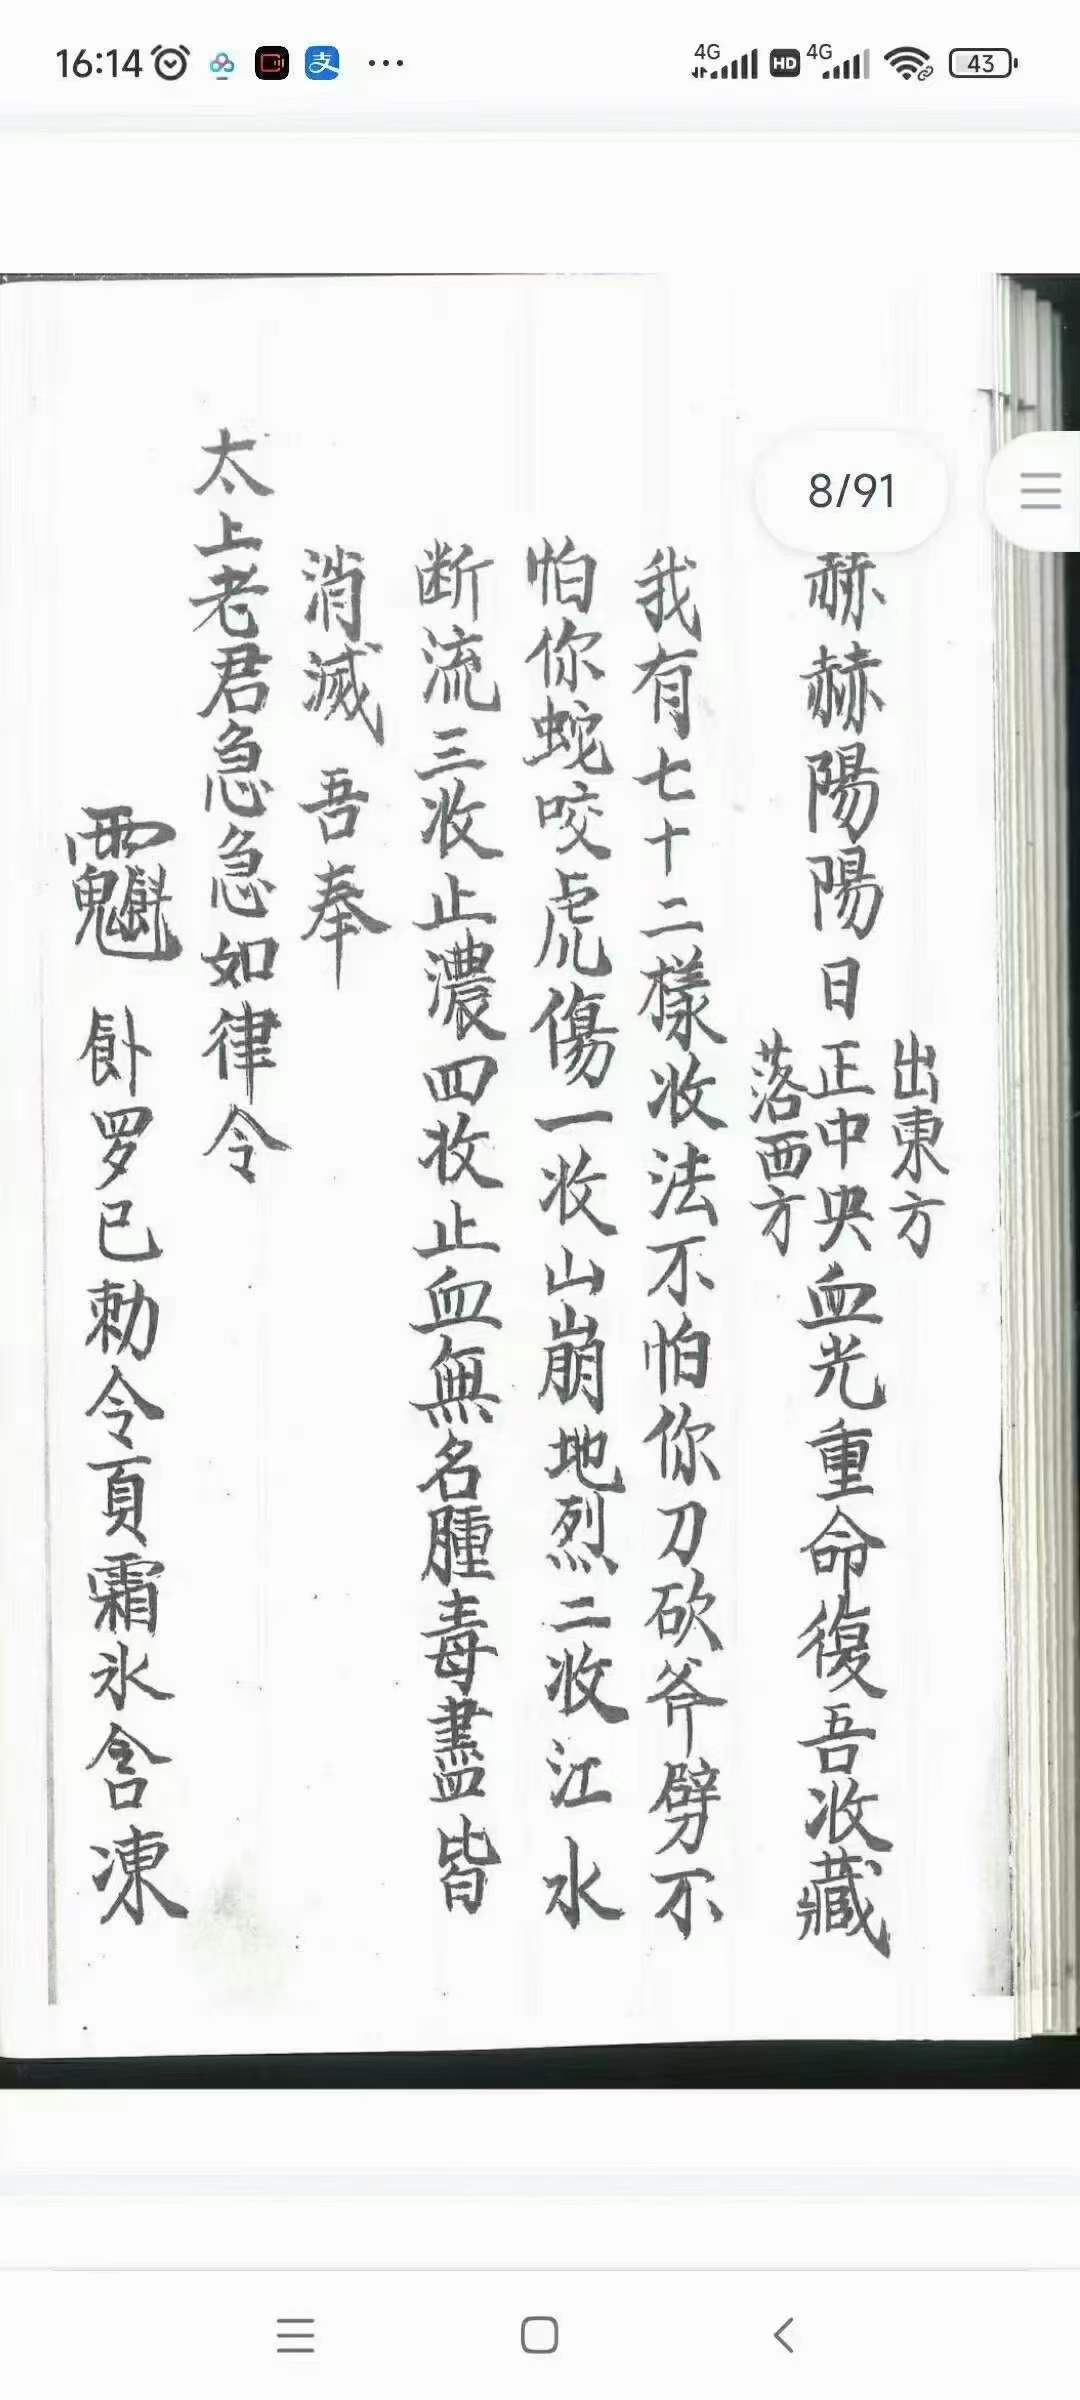 16:14
4G HD 4G 43
8/91
赫赫陽陽日出東方正中央落西方血光重命復吾收藏
我有七十二樣收法不怕你刀砍斧劈不
怕你蛇咬虎傷一收山崩地烈二收江水
断流三收止濃四收止血無名腫毒盡皆
消滅 吾奉
太上老君急急如律令
罗已勅令頁霜氷含凍